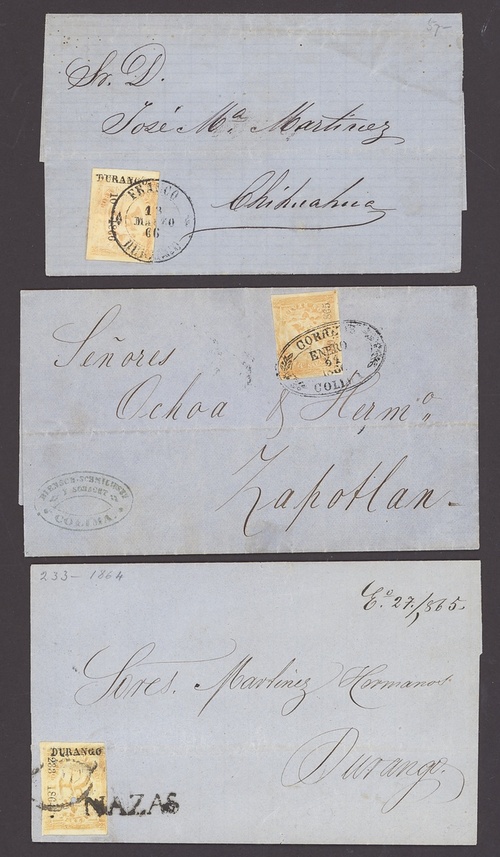 57-
Sr. D.
José Mª Martinez
Chihuahua
DURANGO
FRANCO
12
MARZO
66
DURANGO
Señores
Ochoa & Hermº
Zapotlan-
CORREOS
ENERO
24
COLIMA
COLIMA.
233-1864
Eº 27/865.
Sres. Martinez Hermanos.
Durango.
DURANGO
233 186
NAZAS